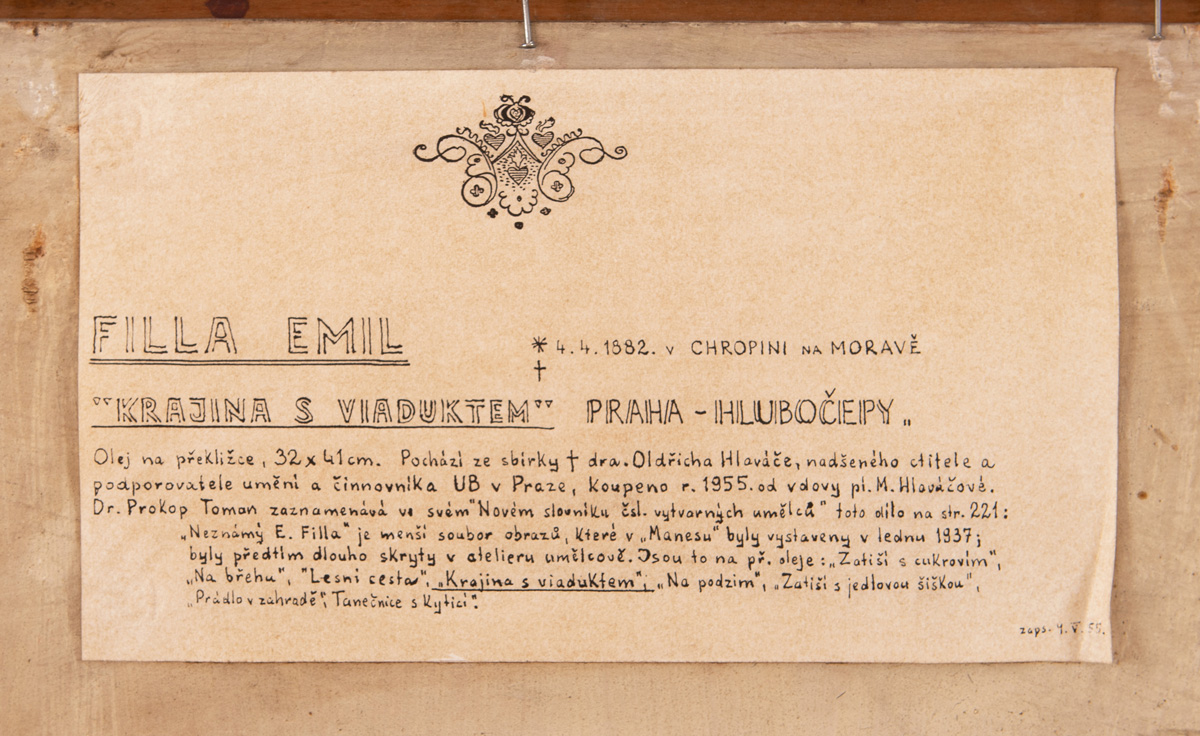 FILLA EMIL
* 4.4.1882. v CHROPINI NA MORAVĚ
†
"KRAJINA S VIADUKTEM" PRAHA - HLUBOČEPY„
Olej na překližce, 32 x 41cm. Pochází ze sbírky † dra. Oldřicha Hlaváče, nadšeného ctitele a
podporovatele umění a činnovníka UB v Praze, koupeno r. 1955. od vdovy pí. M. Hlaváčové.
Dr. Prokop Toman zaznamenává ve svém "Novém slovníku čsl. vytvarných umělců" toto dílo na str. 221:
„Neznámý E. Filla" je menší soubor obrazů, které v „Manesu" byly vystaveny v lednu 1937;
byly předtím dlouho skryty v atelieru umělcově. Jsou to na př. oleje: „Zatiší s cukrovím",
„Na břehu", "Lesní cesta", „Krajina s viaduktem", „Na podzim", „Zatiší s jedlovou šiškou",
„Prádlo v zahradě", Tanečnice s kyticí".
zaps. 4. V. 55.